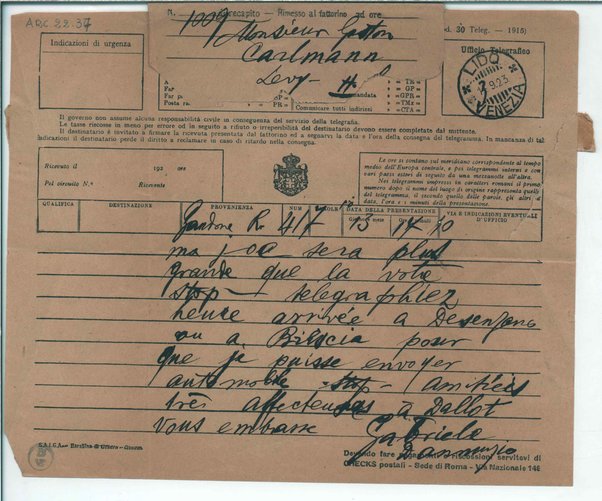 ARC 22.37
N. 1009 recapito - Rimesso al fattorino ad ore
Monsieur Gaston
Carlmann
Levy
Indicazioni di urgenza
d. 30 Teleg. - 1915)
Ufficio Telegrafico
LIDO
9.23
VENEZIA
TR =
GP =
GPR =
TMx =
CTA =
Comunicare tutti indirizzi
Il governo non assume alcuna responsabilità civile in conseguenza del servizio della telegrafia.
Le tasse riscosse in meno per errore od in seguito a rifiuto o irreperibilità del destinatario devono essere completate dal mittente.
Il destinatario è invitato a firmare la ricevuta presentata dal fattorino ed a segnarvi la data e l'ora della consegna del telegramma. In mancanza di tal
indicazioni il destinatario perde il diritto a reclamare in caso di ritardo nella consegna.
Ricevuto il 192 ore
Pel circuito N.° Ricevente
Le ore si contano sul meridiano corrispondente al tempo
medio dell'Europa centrale, e pei telegrammi interni e con
vari paesi esteri di seguito da una mezzanotte all'altra.
Nei telegrammi impressi in caratteri romani il primo
numero dopo il nome del luogo di origine rappresenta quello
del telegramma, il secondo quello delle parole, gli altri la
data, l'ora e i minuti della presentazione.
QUALIFICA DESTINAZIONE PROVENIENZA NUM DATA DELLA PRESENTAZIONE VIA E INDICAZIONI EVENTUALI D'UFFICIO
Giorni e mese
Gardone Rv 417 13 14 10
ma joa sera plus
grande que la votre
stop - telegraphiez
heure arrivée a Desenzano
ou a Brescia pour
que je puisse envoyer
automobile stop - amitiés
très affectueuses a Dallot
vous embrasse Gabriele
Dannunzio
Devendo fare pagamenti o riscossioni servitevi di
CHECKS postali - Sede di Roma - Via Nazionale 146